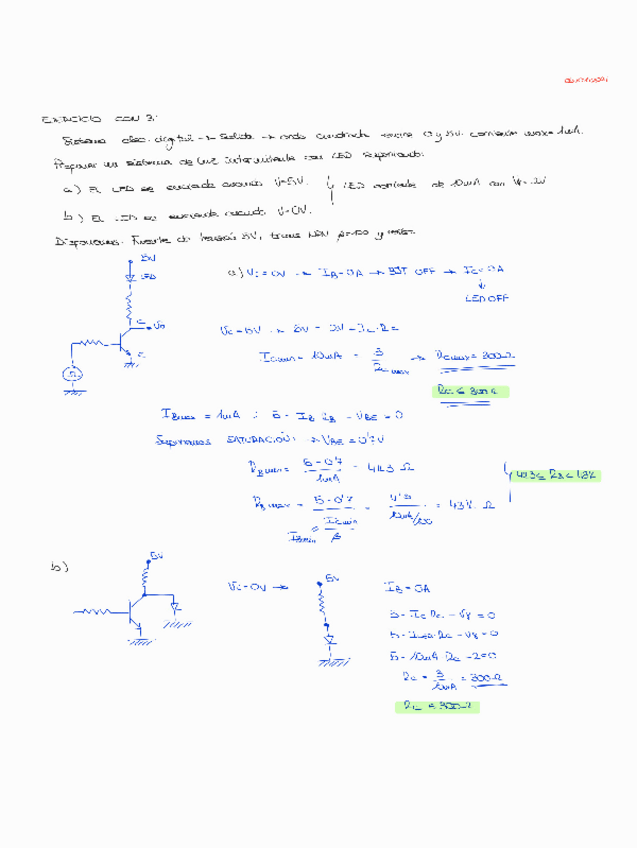 EJERCICIO CON 3:
Sistema elec. digital → Salida → onda cuadrada entre 0 y 5V. corriente max = 1mA.
Proponer un sistema de luz intermitente con LED suponiendo:
a) El LED se enciende cuando V=5V. LED corriente de 10mA con Vγ=2V
b) El LED se enciende cuando V=0V.
Disponemos: Fuente de tensión 5V, trans NPN β=100 y resist.
5V
LED
C
Vo
E
a) Vi = 0V → IB = 0A → BJT OFF → IC = 0A
↓
LED OFF
Vi = 5V → 5V - 2V - IC·RC =
ICmin = 10mA = 3/RC max → RCmax = 300Ω
RC ≤ 300Ω
IBmax = 1mA ; 5 - IB RB - VBE = 0
Suponemos SATURACIÓN: → VBE = 0'7V
RB min = 5-0'7 / 1mA = 4k3 Ω
RB max = 5-0'7 / ICmin/β = 4'3 / 10mA/100 = 43k Ω
IBmin
b)
5V
Vi = 0V →
5V
IB = 0A
5 - IC RC - Vγ = 0
5 - 10mA RC - 2 = 0
RC = 3 / 10mA = 300Ω
RC ≤ 300Ω